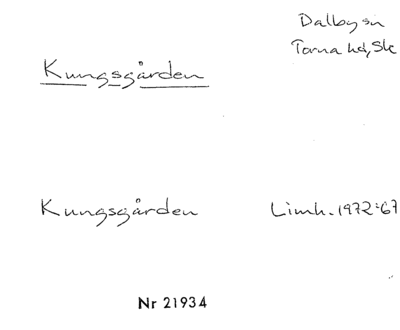 Dalby sn
Torna hd, Sk
Kungsgården
Kungsgården Limh. 1972:67
Nr 21934